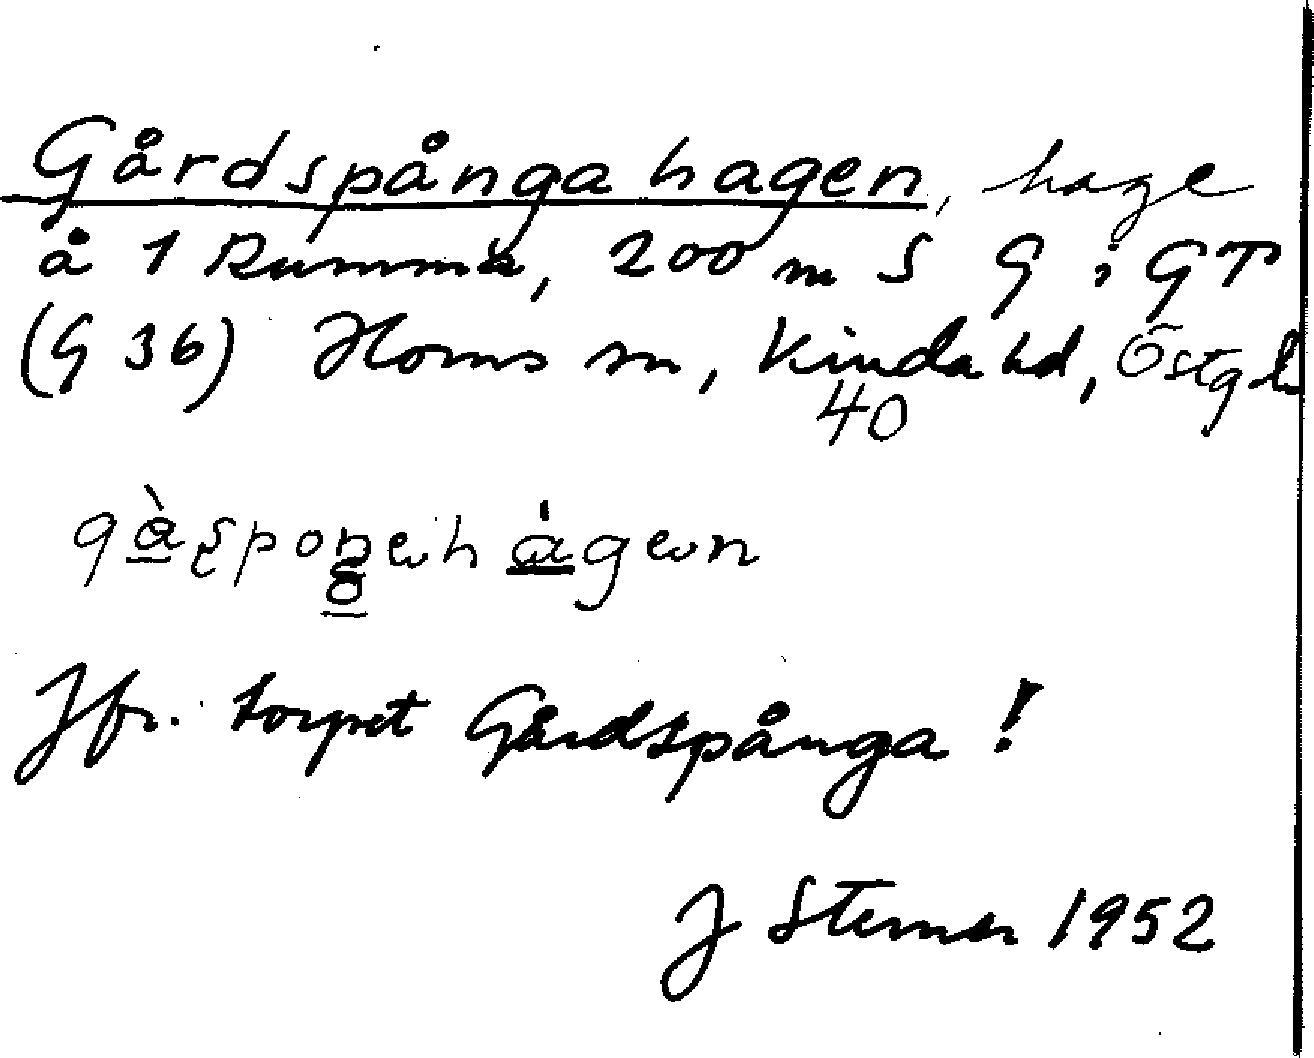 Gårdspångahagen, hage
å 1 Rumma, 200 m S G i GT
(G 36) Horns sn, Kinda hd, Östg l
40
Jfr. torpet Gårdspånga!
J Sterner 1952